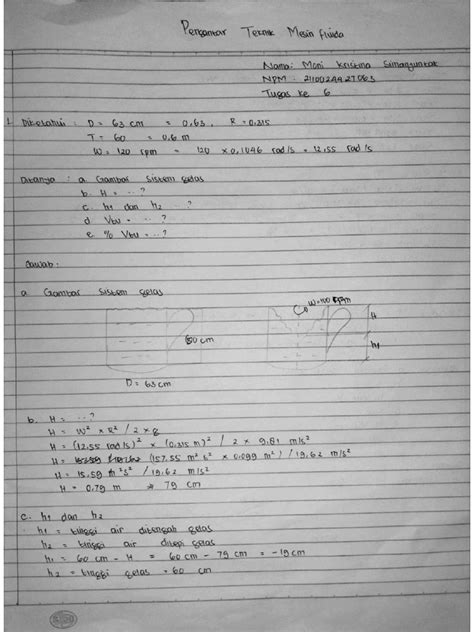 Pengantar Teknik Mesin Fluida
Nama: Moni Kristina Simanguntak
Tugas ke 6
1. Diketahui : D = 63 cm = 0,63. R = 0.315
T = 60 = 0,6 m
W = 120 rpm = 120 x 0,1046 rad/s = 12,55 rad/s
Ditanya : a Gambar sistem gelas
b. H = ...?
c. h1 dan h2 ...?
d Vbu = ...?
e. % Vbu = ...?
Jawab :
a Gambar sistem gelas
60 cm
D = 63 cm
H
h1
b. H = ...?
H = W² x R² / 2 x g
H = (12.55 rad/s)² x (0.315 m)² / 2 x 9.81 m/s²
(157.55 m² s² x 0.099 m²) / 19,62 m/s²
H = 15.59 m²s² / 19,62 m/s²
H = 0.79 m 79 cm
c. h1 dan h2
h1 = tinggi air ditengah gelas
h2 = tinggi air ditepi gelas
h1 = 60 cm - H = 60 cm - 79 cm = -19 cm
h2 = tinggi gelas = 60 cm